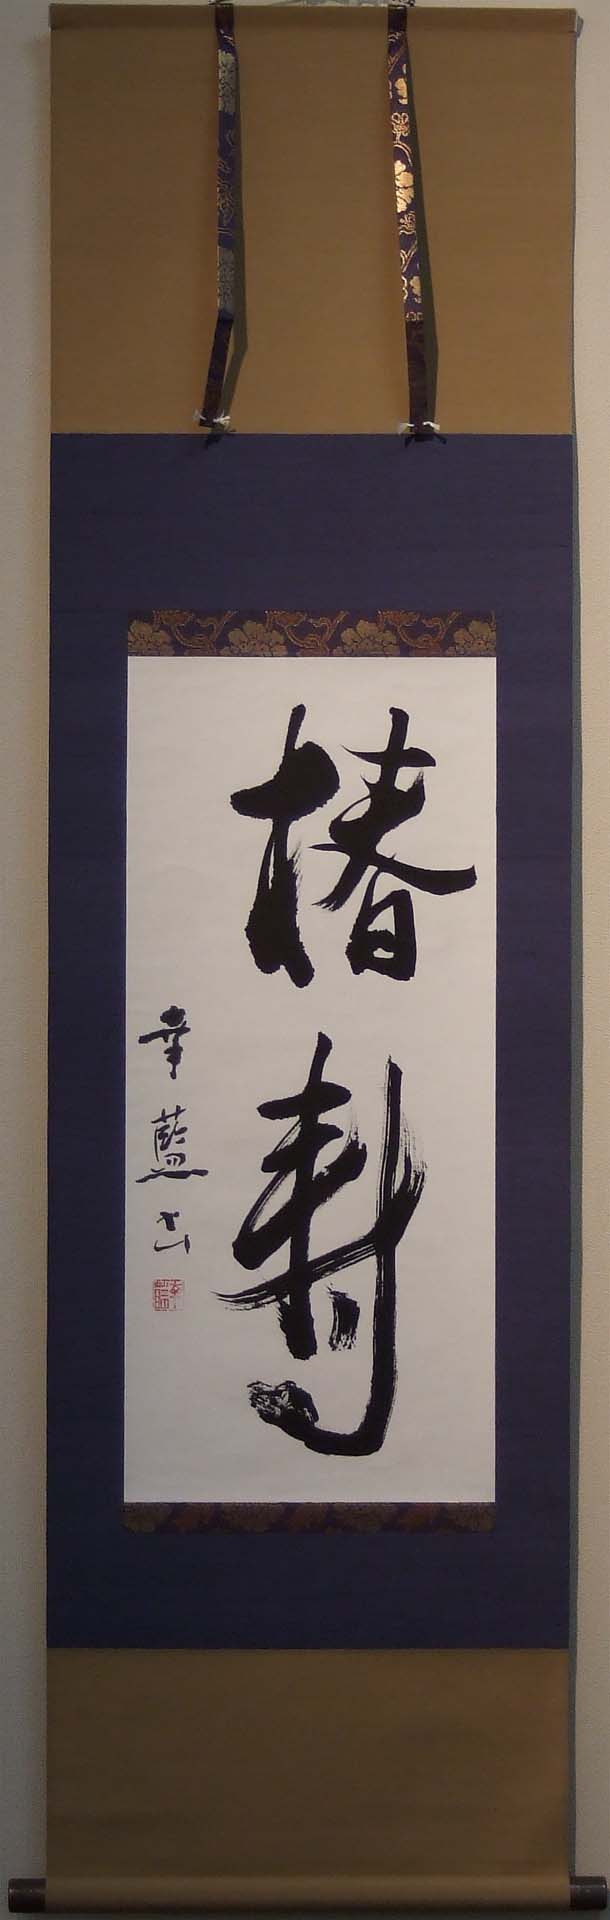 椿寿
幸藍